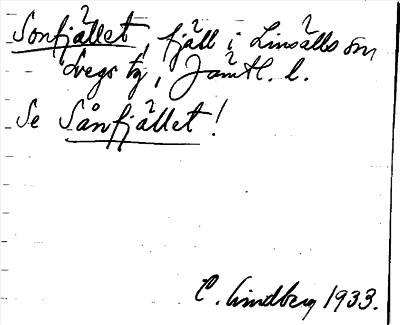 Sonfjället, fjäll i Linsälls sn
Svegs tg, Jämtl. l.
Se Sånfjället!
C. Lindberg 1933.